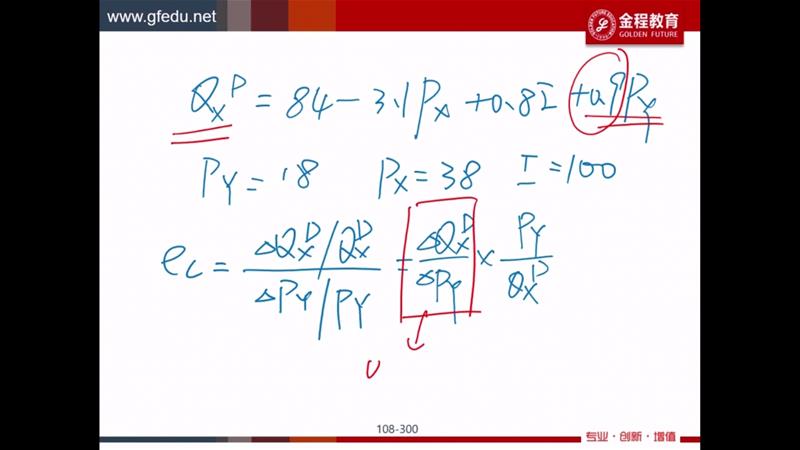 www.gfedu.net
金程教育
GOLDEN FUTURE
Qₓᴰ = 84 - 3.1Pₓ + 0.8I + 0.9P_Y
P_Y = 18 Pₓ = 38 I = 100
e_c = (ΔQₓᴰ/Qₓᴰ)/(ΔP_Y/P_Y) = ΔQₓᴰ/ΔP_Y × P_Y/Qₓᴰ
108-300
专业·创新·增值